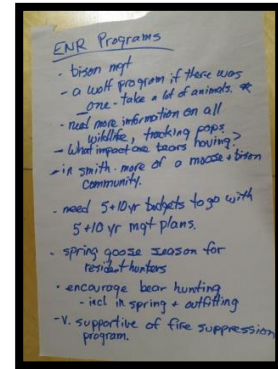 ENR Programs
- bison mgt
- a wolf program if there was
one - take a lot of animals. *
- need more information on all
wildlife, tracking pops
- what impact are bears having?
- in smith - more of a moose + bison
community.
- need 5+10yr budgets to go with
5+10 yr mgt plans.
- spring goose season for
resident hunters
- encourage bear hunting
- incl in spring + outfitting
- V. supportive of fire suppression
program.